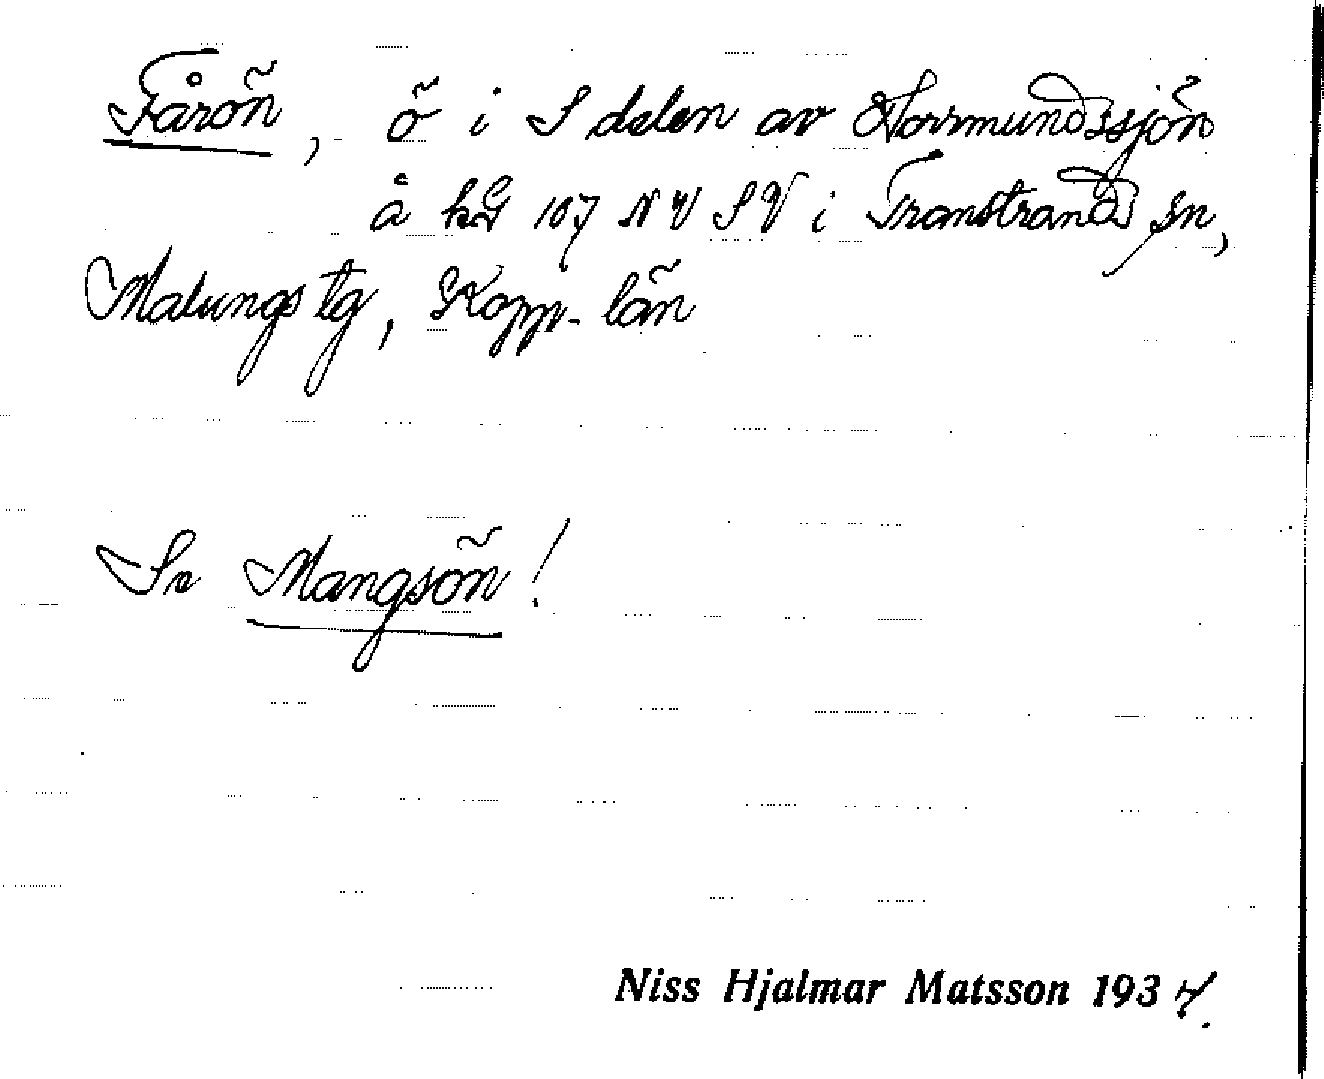 Fårön, ö i S delen av Hormundssjön
å kbl 107 NV SV i Transtrand sn,
Malungs tg, Kopp. län
Se Mangsön!
Niss Hjalmar Matsson 1937.